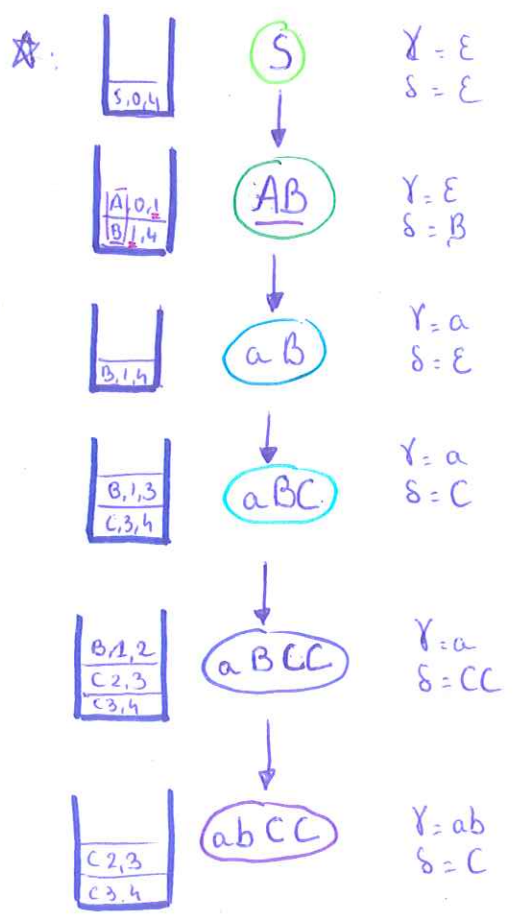 ☆:
S,0,4
S
γ = ε
δ = ε
A,0,1
B,1,4
AB
γ = ε
δ = B
B,1,4
aB
γ = a
δ = ε
B,1,3
C,3,4
aBC
γ = a
δ = C
B,1,2
C2,3
C3,4
aBCC
γ = a
δ = CC
C2,3
C3,4
abCC
γ = ab
δ = C